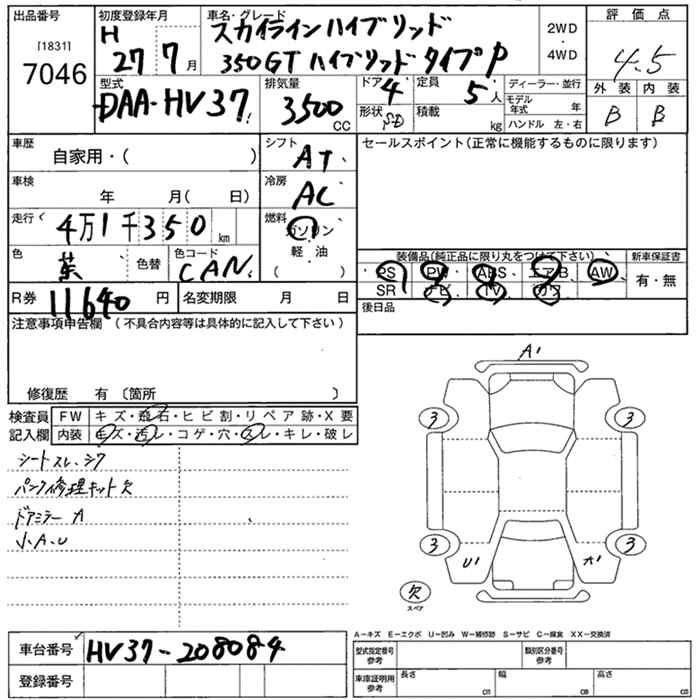 出品番号
[1831]
7046
初度登録年月
H
27 7 月
車名・グレード
スカイラインハイブリッド
350GT ハイブリッド タイプP
2WD
・
4WD
評価点
4.5
外装 内装
B B
型式
DAA-HV37
排気量
3500
CC
ドア
4
形状
SD
定員
5 人
積載
kg
ディーラー・並行
モデル年式 年
ハンドル 左・右
車歴
自家用・( )
車検
年 月( 日)
走行
4万1千350 km
色
茶
色替
色コード
CAN
R券 11640 円
名変期限 月 日
シフト
AT
冷房
AC
燃料
ガソリン
軽・油
( )
セールスポイント(正常に機能するものに限ります)
装備品(純正品に限り丸をつけて下さい)
PS PW ABS エアB AW
SR ナビ TV カワ
新車保証書
有・無
後日品
注意事項申告欄 (不具合内容等は具体的に記入して下さい)
修復歴 有 〔箇所 〕
検査員
記入欄
FW キズ・飛石・ヒビ割・リペア跡・X要
内装 キズ・汚レ・コゲ・穴・スレ・キレ・破レ
シートスレ、シワ
パンク修理キット欠
ドアミラー A
小A、U
A1
3 3
3 3
U1 A1
欠
スペア
A−キズ E−エクボ U−凹み W−補修跡 S−サビ C−腐食 XX−交換済
車台番号 HV37-208084
登録番号
型式指定番号
参考
類別区分番号
参考
車庫証明用
参考
長さ cm
幅 cm
高さ cm